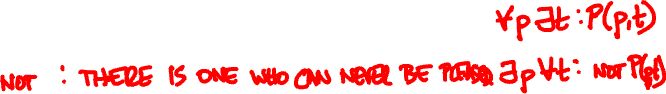 ∀p ∃t : P(p,t)
NOT : THERE IS ONE WHO CAN NEVER BE PLEASED. ∃p ∀t : NOT P(p,t)